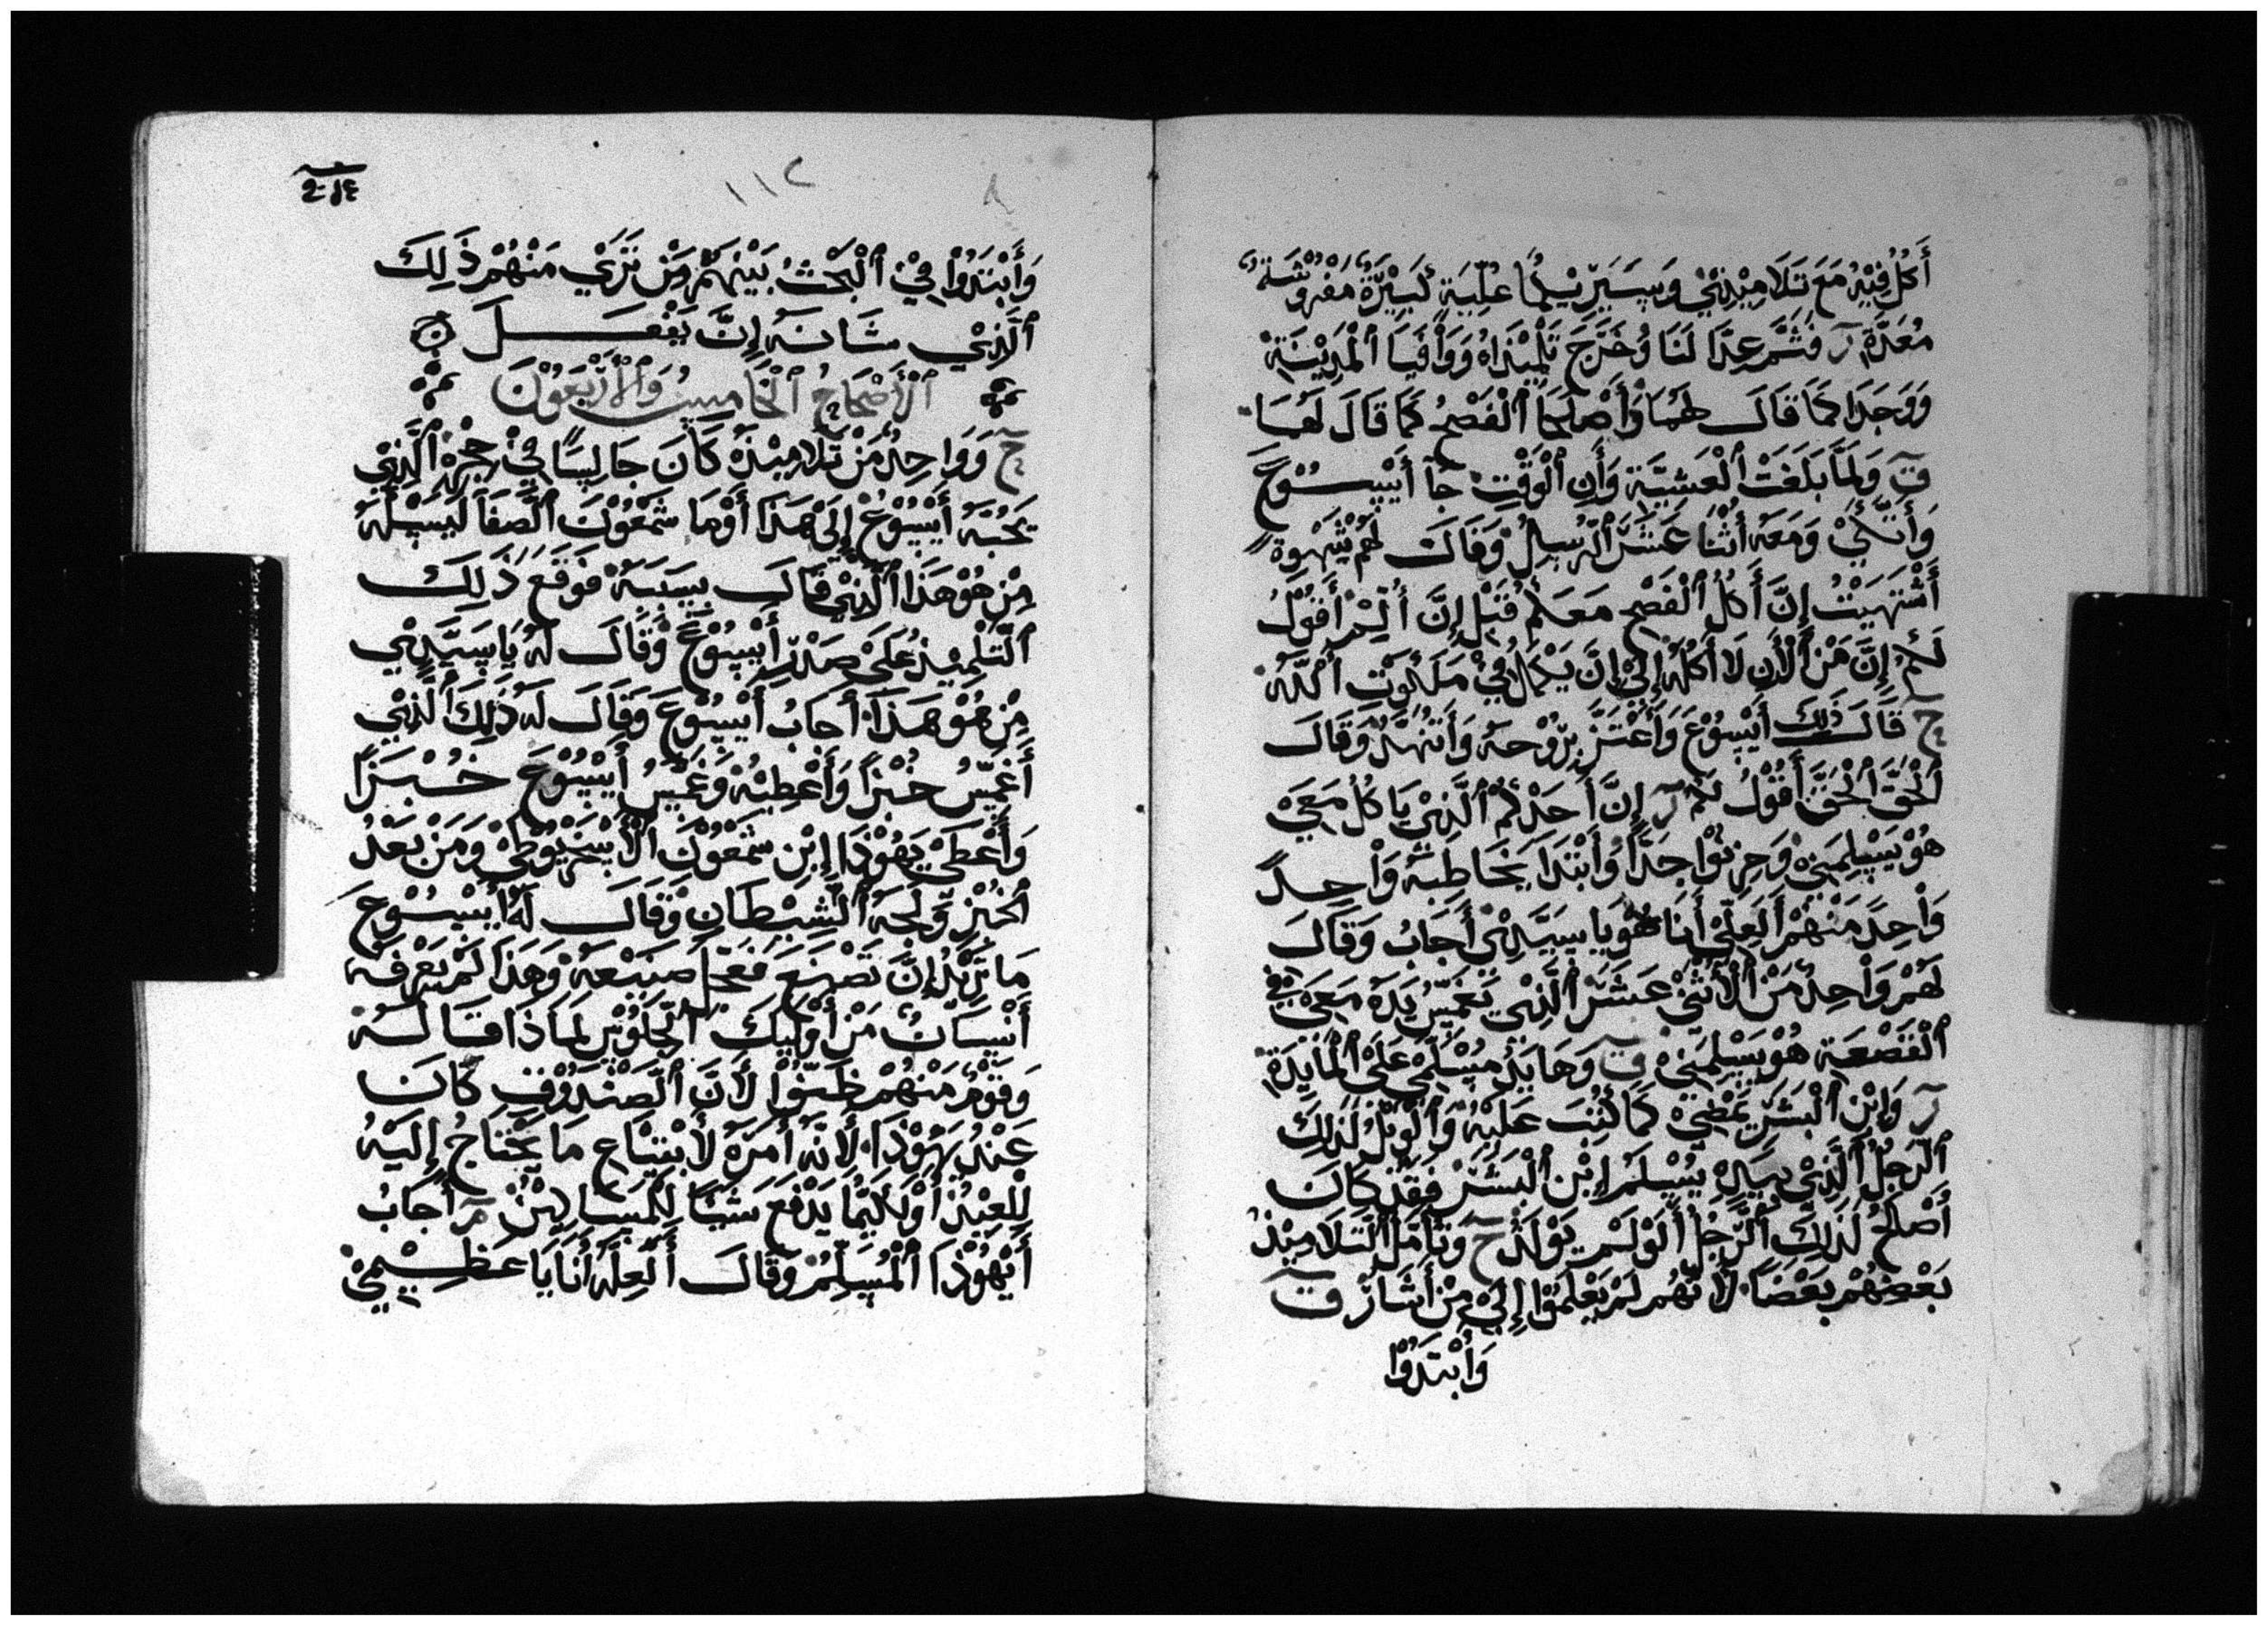 أكل فيه مع تلاميذي وسيريكما علية كبيرة مفروشة
معدة ر فثم عدا لنا وخرج تلميذاه ووافيا المدينة
ووجدا كما قال لهما وأصلحا الفصح كما قال لهما
ق ولما بلغت العشية وأن الوقت جا أيسوع
وأتكئ ومعه أثنا عشر الرسل وقال لهم شهوة
أشتهيت إن أكل الفصح معكم قبل إن ألم أقول
لكم إن من الأن لا أكله إلى إن يكمل في ملكوت الله
ح قال ذلك أيسوع وأعتز بروحه وأتنهد وقال
الحق الحق أقول لكم ر إن أحدكم الذي ياكل معي
هو يسلمني وحزنوا جدا وأبتدا يخاطبه واحد
واحد منهم العلي أنا هو يا سيدي أجاب وقال
لهم واحد من الأثني عشر الذي يغمس يده معي في
القصعة هو يسلمني ق وها يد مسلمي على المايدة
ر وابن البشر يمضي كما كتب عليه والويل لذلك
الرجل الذي بيده يسلم إبن البشر فقد كان
أصلح لذلك الرجل ألو لم يولد ح وتأمل التلاميذ
بعضهم بعضا لأنهم لم يعلموا إلى من أشار ق
وأبتدوا
١١٢
وأبتدوا في البحث بينهم من تري منهم ذلك
الذي شانه إن يفعل
الأصحاح الخامس والأربعون
ح وواحد من تلاميذه كان جالسا في حجره الذي
يحبه أيسوع إلى هذا أوما شمعون الصفا ليسله
من هو هذا الذي قال بسببه فوقع ذلك
التلميذ على صدر أيسوع وقال له يا سيدي
من هو هذا أجاب أيسوع وقال له ذلك الذي
أغمس خبزا وأعطيه وغمس أيسوع خبزا
وأعطى يهوذا إبن شمعون الأسخريوطي ومن بعد
الخبز ولجه الشيطان وقال له أيسوع
ما تريد إن تصنع فعجل صنعه وهذا لم يعرفه
أنسان من أوليك الجلوس لماذا قاله
وقوم منهم ظنوا لأن الصندوق كان
عند يهوذا لأنه أمره لأبتياع ما يحتاج إليه
للعيد أو لكيما يدفع شيا للمساكين م أجاب
أيهوذا المسلم وقال ألعله أنا يا عظيمي